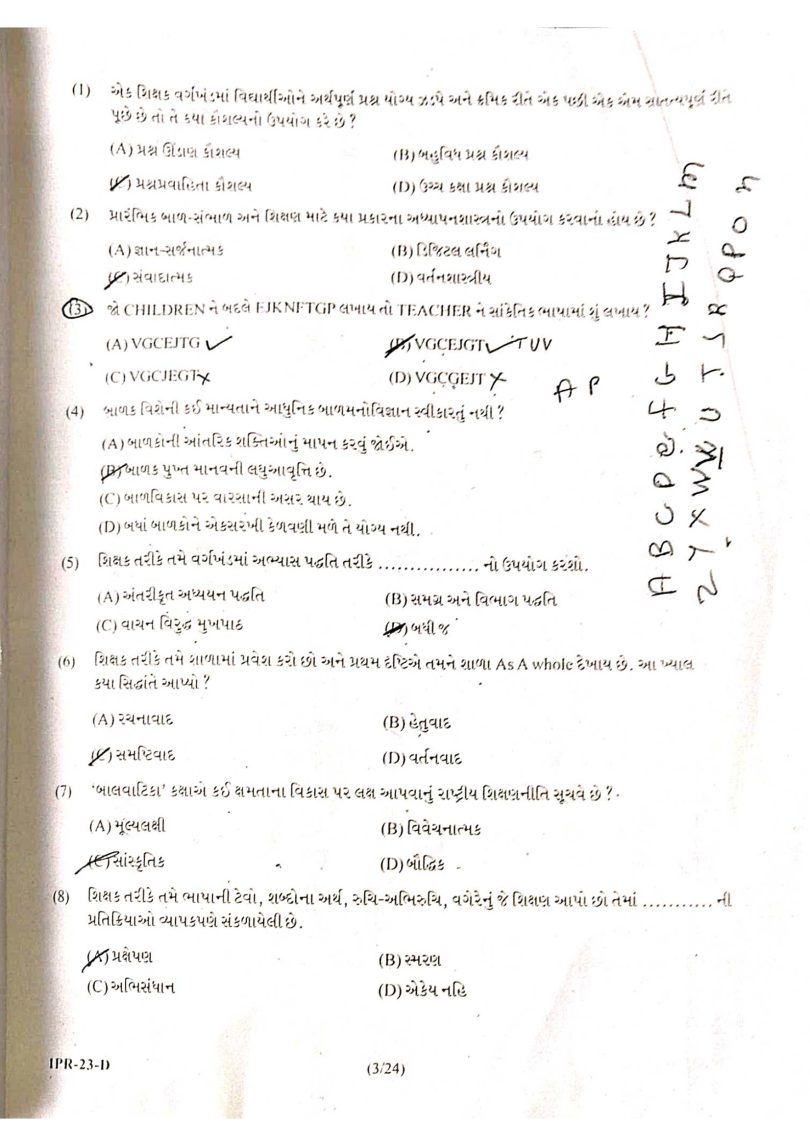 (1) એક શિક્ષક વર્ગખંડમાં વિદ્યાર્થીઓને અર્થપૂર્ણ પ્રશ્ન યોગ્ય ઝડપે અને ક્રમિક રીતે એક પછી એક એમ સાતત્યપૂર્ણ રીતે
પૂછે છે તો તે કયા કૌશલ્યનો ઉપયોગ કરે છે ?
(A) પ્રશ્ન ઊંડાણ કૌશલ્ય (B) બહુવિધ પ્રશ્ન કૌશલ્ય
(C) પ્રશ્નપ્રવાહિતા કૌશલ્ય (D) ઉચ્ચ કક્ષા પ્રશ્ન કૌશલ્ય
(2) પ્રારંભિક બાળ-સંભાળ અને શિક્ષણ માટે કયા પ્રકારના અધ્યાપનશાસ્ત્રનો ઉપયોગ કરવાનો હોય છે ?
(A) જ્ઞાન-સર્જનાત્મક (B) ડિજિટલ લર્નિંગ
(C) સંવાદાત્મક (D) વર્તનશાસ્ત્રીય
(3) જો CHILDREN ને બદલે EJKNFTGP લખાય તો TEACHER ને સાંકેતિક ભાષામાં શું લખાય ?
(A) VGCEJTG (B) VGCEJGT TUV
(C) VGCJEGT (D) VGCGEJT
A P
(4) બાળક વિશેની કઈ માન્યતાને આધુનિક બાળમનોવિજ્ઞાન સ્વીકારતું નથી ?
(A) બાળકોની આંતરિક શક્તિઓનું માપન કરવું જોઈએ.
(B) બાળક પુખ્ત માનવની લઘુઆવૃત્તિ છે.
(C) બાળવિકાસ પર વારસાની અસર થાય છે.
(D) બધાં બાળકોને એકસરખી કેળવણી મળે તે યોગ્ય નથી.
(5) શિક્ષક તરીકે તમે વર્ગખંડમાં અભ્યાસ પદ્ધતિ તરીકે ................ નો ઉપયોગ કરશો.
(A) અંતરીકૃત અધ્યયન પદ્ધતિ (B) સમગ્ર અને વિભાગ પદ્ધતિ
(C) વાચન વિરુદ્ધ મુખપાઠ (D) બધી જ
(6) શિક્ષક તરીકે તમે શાળામાં પ્રવેશ કરો છો અને પ્રથમ દૃષ્ટિએ તમને શાળા As A whole દેખાય છે. આ ખ્યાલ
કયા સિદ્ધાંતે આપ્યો ?
(A) રચનાવાદ (B) હેતુવાદ
(C) સમષ્ટિવાદ (D) વર્તનવાદ
(7) ‘બાલવાટિકા’ કક્ષાએ કઈ ક્ષમતાના વિકાસ પર લક્ષ આપવાનું રાષ્ટ્રીય શિક્ષણનીતિ સૂચવે છે ?
(A) મૂલ્યલક્ષી (B) વિવેચનાત્મક
(C) સાંસ્કૃતિક (D) બૌદ્ધિક
(8) શિક્ષક તરીકે તમે ભાષાની ટેવો, શબ્દોના અર્થ, રુચિ-અભિરુચિ, વગેરેનું જે શિક્ષણ આપો છો તેમાં ........... ની
પ્રતિક્રિયાઓ વ્યાપકપણે સંકળાયેલી છે.
(A) પ્રક્ષેપણ (B) સ્મરણ
(C) અભિસંધાન (D) એકેય નહિ
IPR-23-D (3/24)